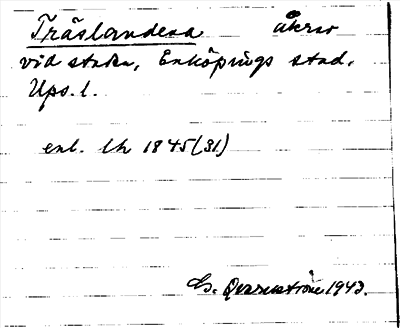 Träslandena åkrar
vid staden, Enköpings stad,
Ups. l.
enl. lh 1845(31)
G. Qvarnström 1943.